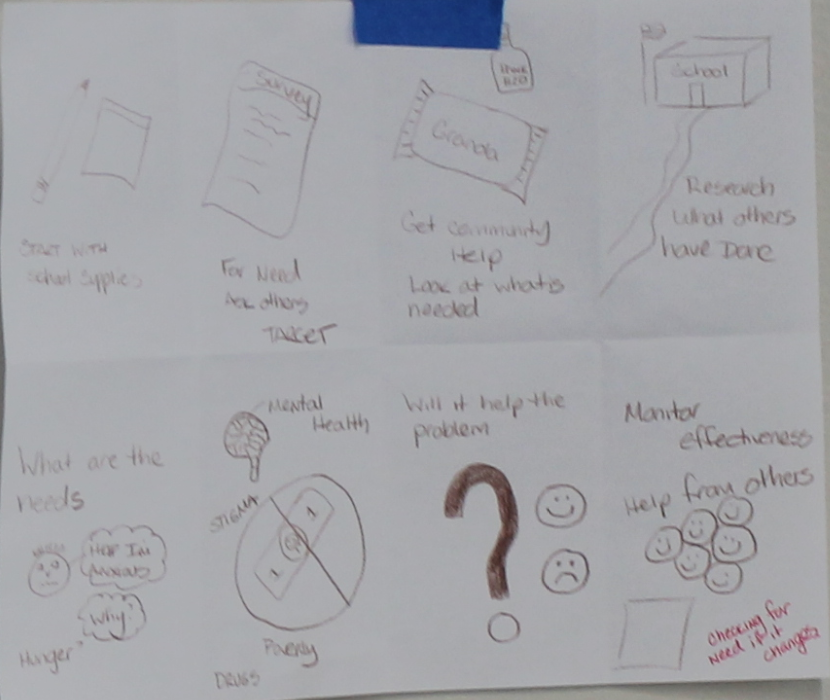 START WITH
School Supplies
Survey
For Need
Ask others
TARGET
H2O
Granola
Get community
Help
Look at what is
needed
School
Research
what others
have Done
What are the
needs
Why?
Hunger
Mental
Health
STIGMA
1
1
Poverty
DRUGS
Will it help the
problem
?
Monitor
effectiveness
Help from others
checking for
need if it
changes